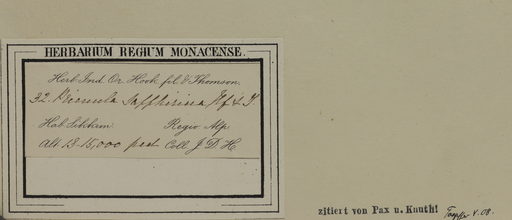 HERBARIUM REGIUM MONACENSE.
Herb. Ind. Or. Hook. fil. & Thomson.
32. Primula Sapphirina Hf & T
Hab. Sikkim Regio Alp
Alt. 13-15,000 ped Coll. J. D. H.
zitiert von Pax u. Knuth!
4.08.